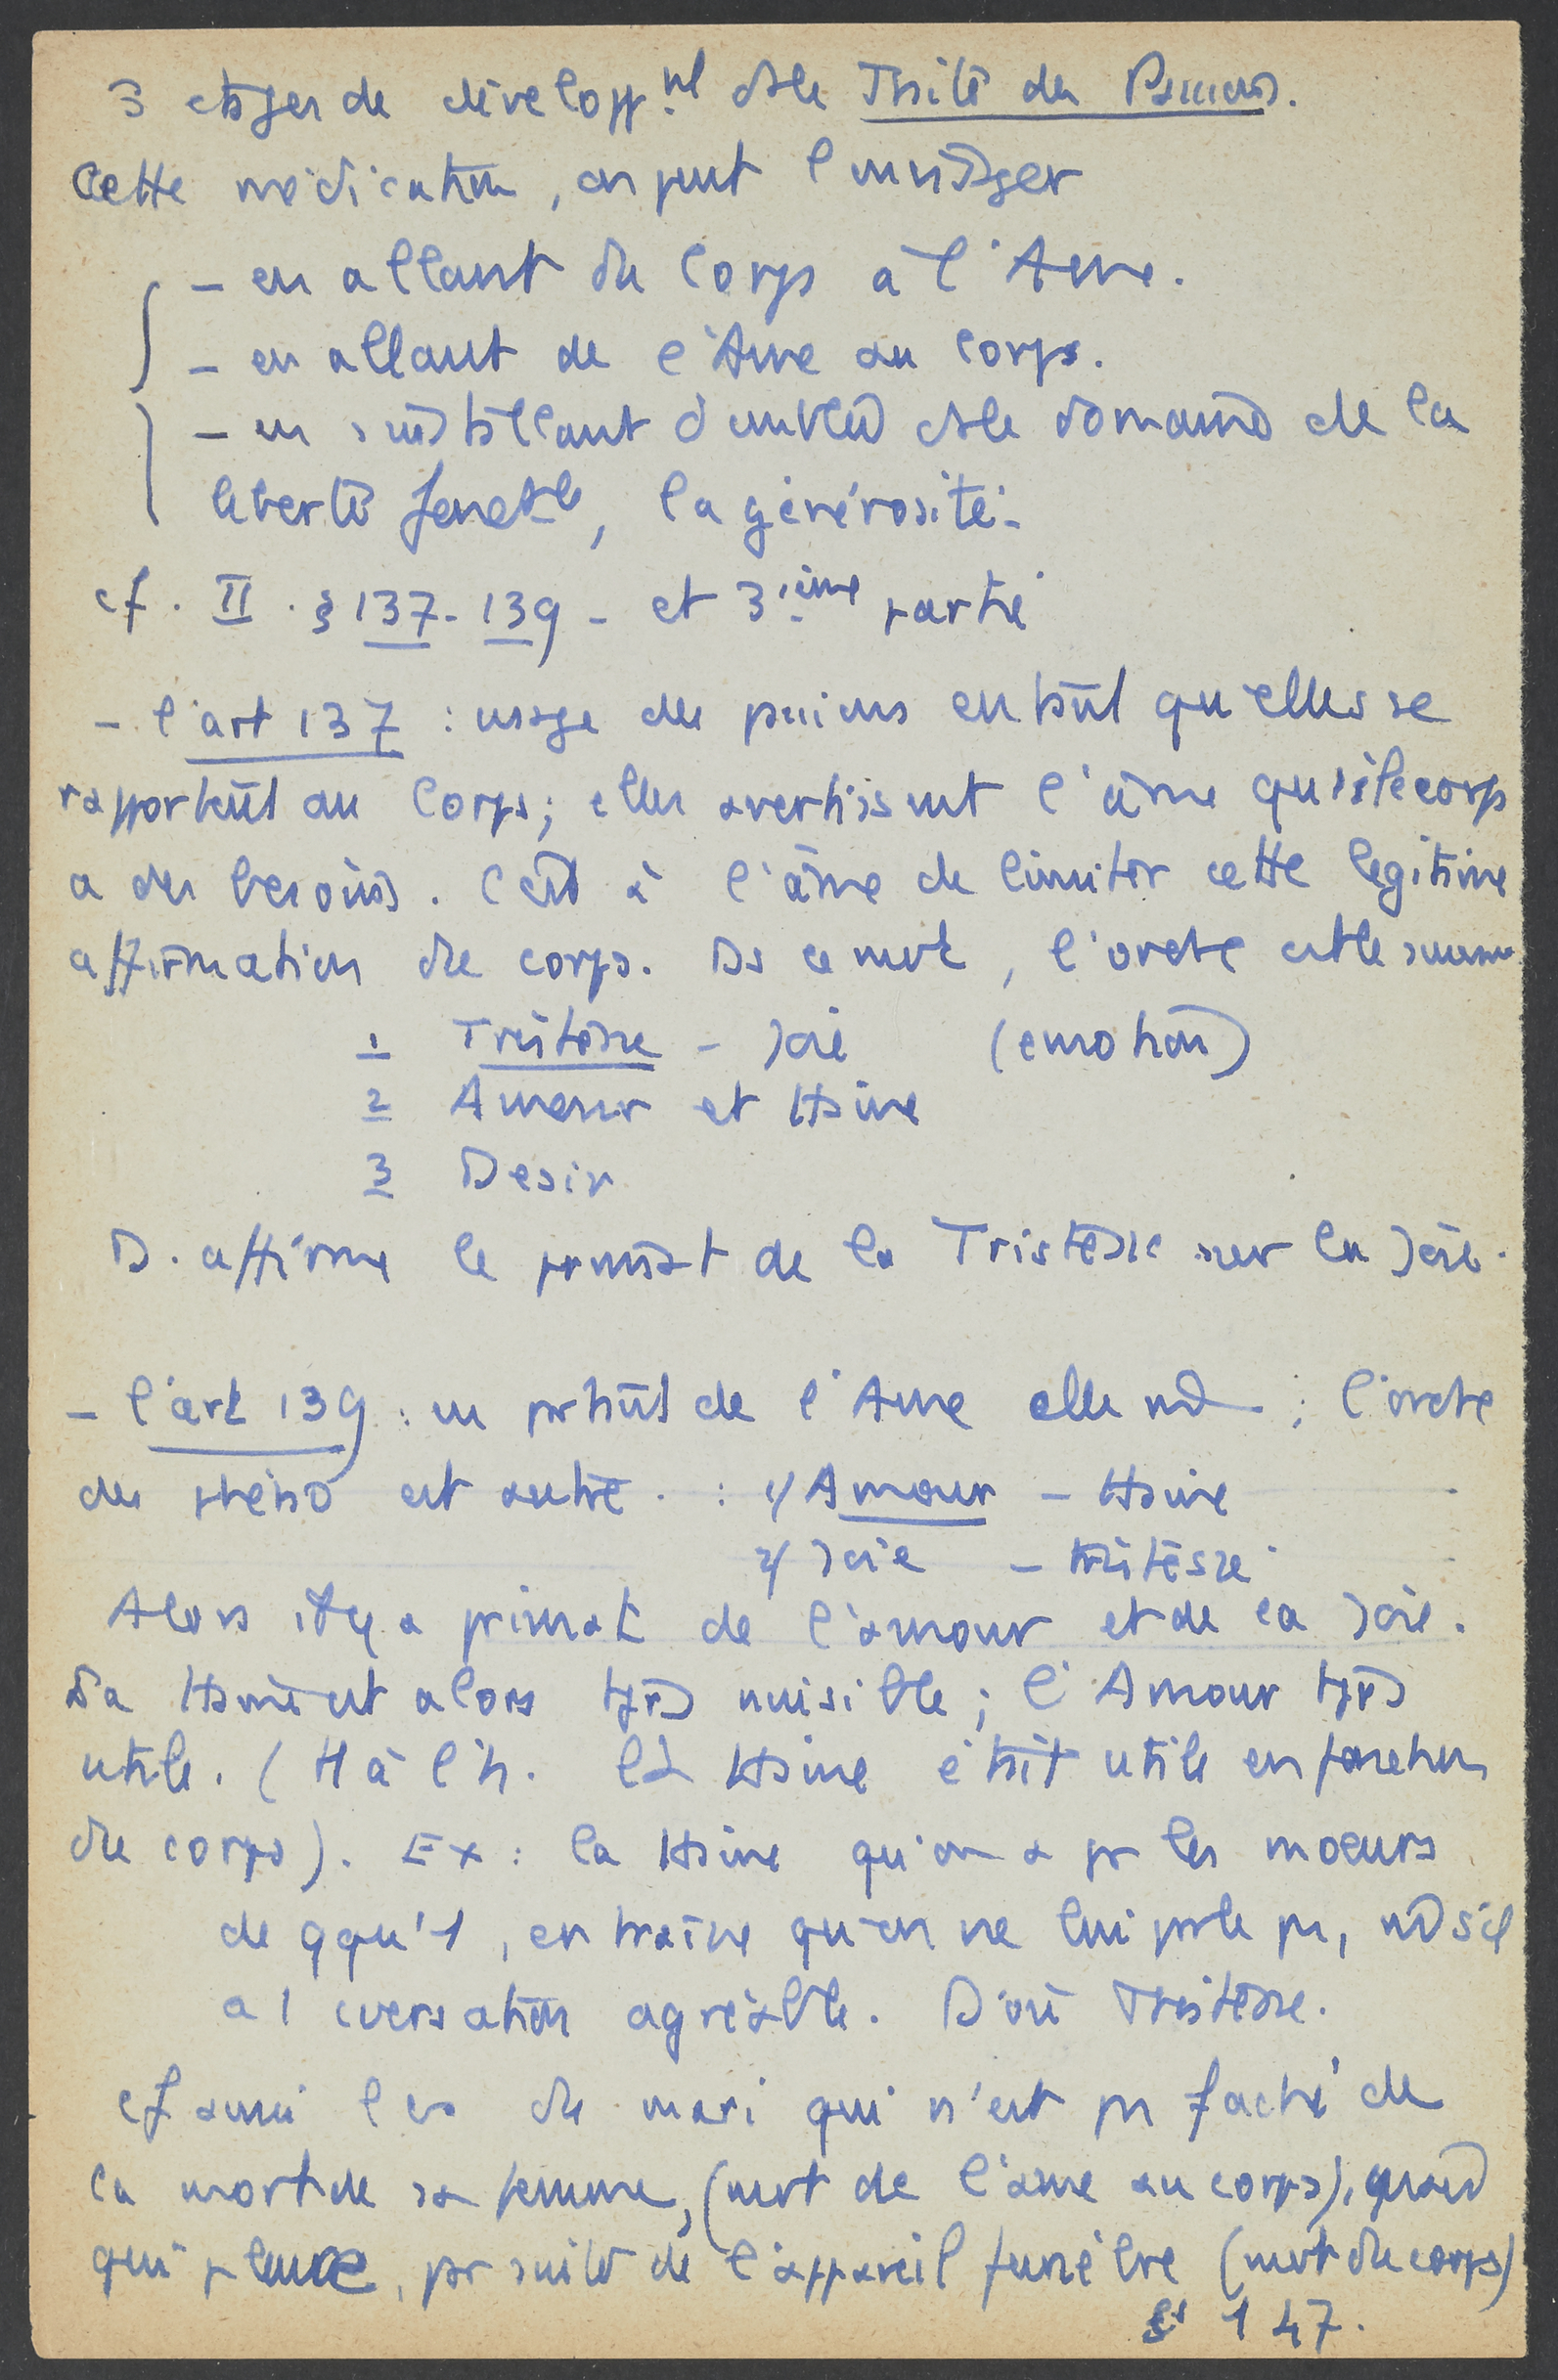 3 étages de développnt ds le Traité des Passions.
Cette médication, on peut l'envisager
- en allant du Corps à l'Ame.
- en allant de l'Ame au Corps.
- en s'installant d'emblée ds le domaine de la
liberté fondtle, la générosité.
cf. II. § 137-139 - et 3ième partie
- l'art 137 : usage des passions en tant qu'elles se
rapportent au Corps; elles avertissent l'âme que si le corps
a des besoins. C'est à l'âme de limiter cette légitime
affirmation du corps. Ds ce mvt, l'ordre est le suivant
1 Tristesse - Joie (émotion)
2 Amour et Haine
3 Desir
D. affirme le primat de la Tristesse sur la Joie.
- l'art 139 : en partant de l'Ame elle m ; l'ordre
des phéno est autre. : 1/ Amour - Haine
2/ Joie - tristesse
Alors il y a primat de l'amour et de la Joie.
La Haine est alors tjrs nuisible; l'Amour tjrs
utile. ( là la Haine était utile en fonction
du corps). Ex : la Haine qu'on a pr les moeurs
de qqu'1, entraîne qu'on ne lui parle pas, m s'il
a 1 cversation agréable. D'où Tristesse.
cf aussi le cas du mari qui n'est pas faché de
la mort de sa femme, (mvt de l'âme au corps),
qui pleure, par suite de l'appareil funèbre (mvt du corps)
§ 147.